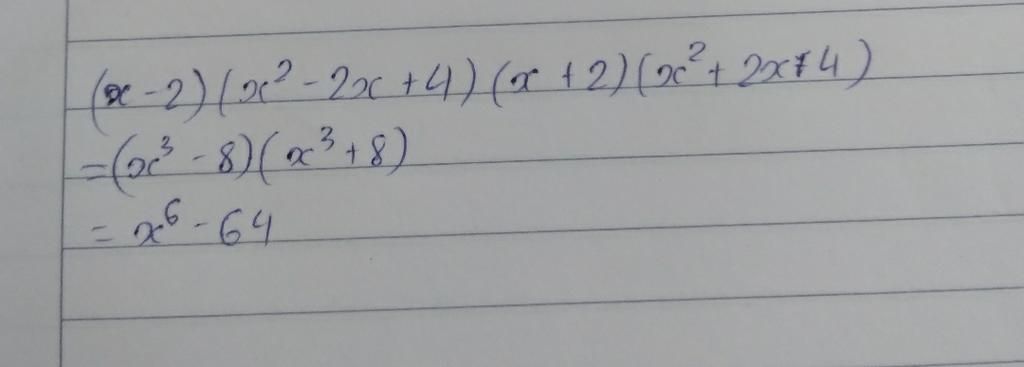 (x - 2) (x² - 2x + 4) (x + 2) (x² + 2x + 4)
= (x³ - 8) (x³ + 8)
= x⁶ - 64